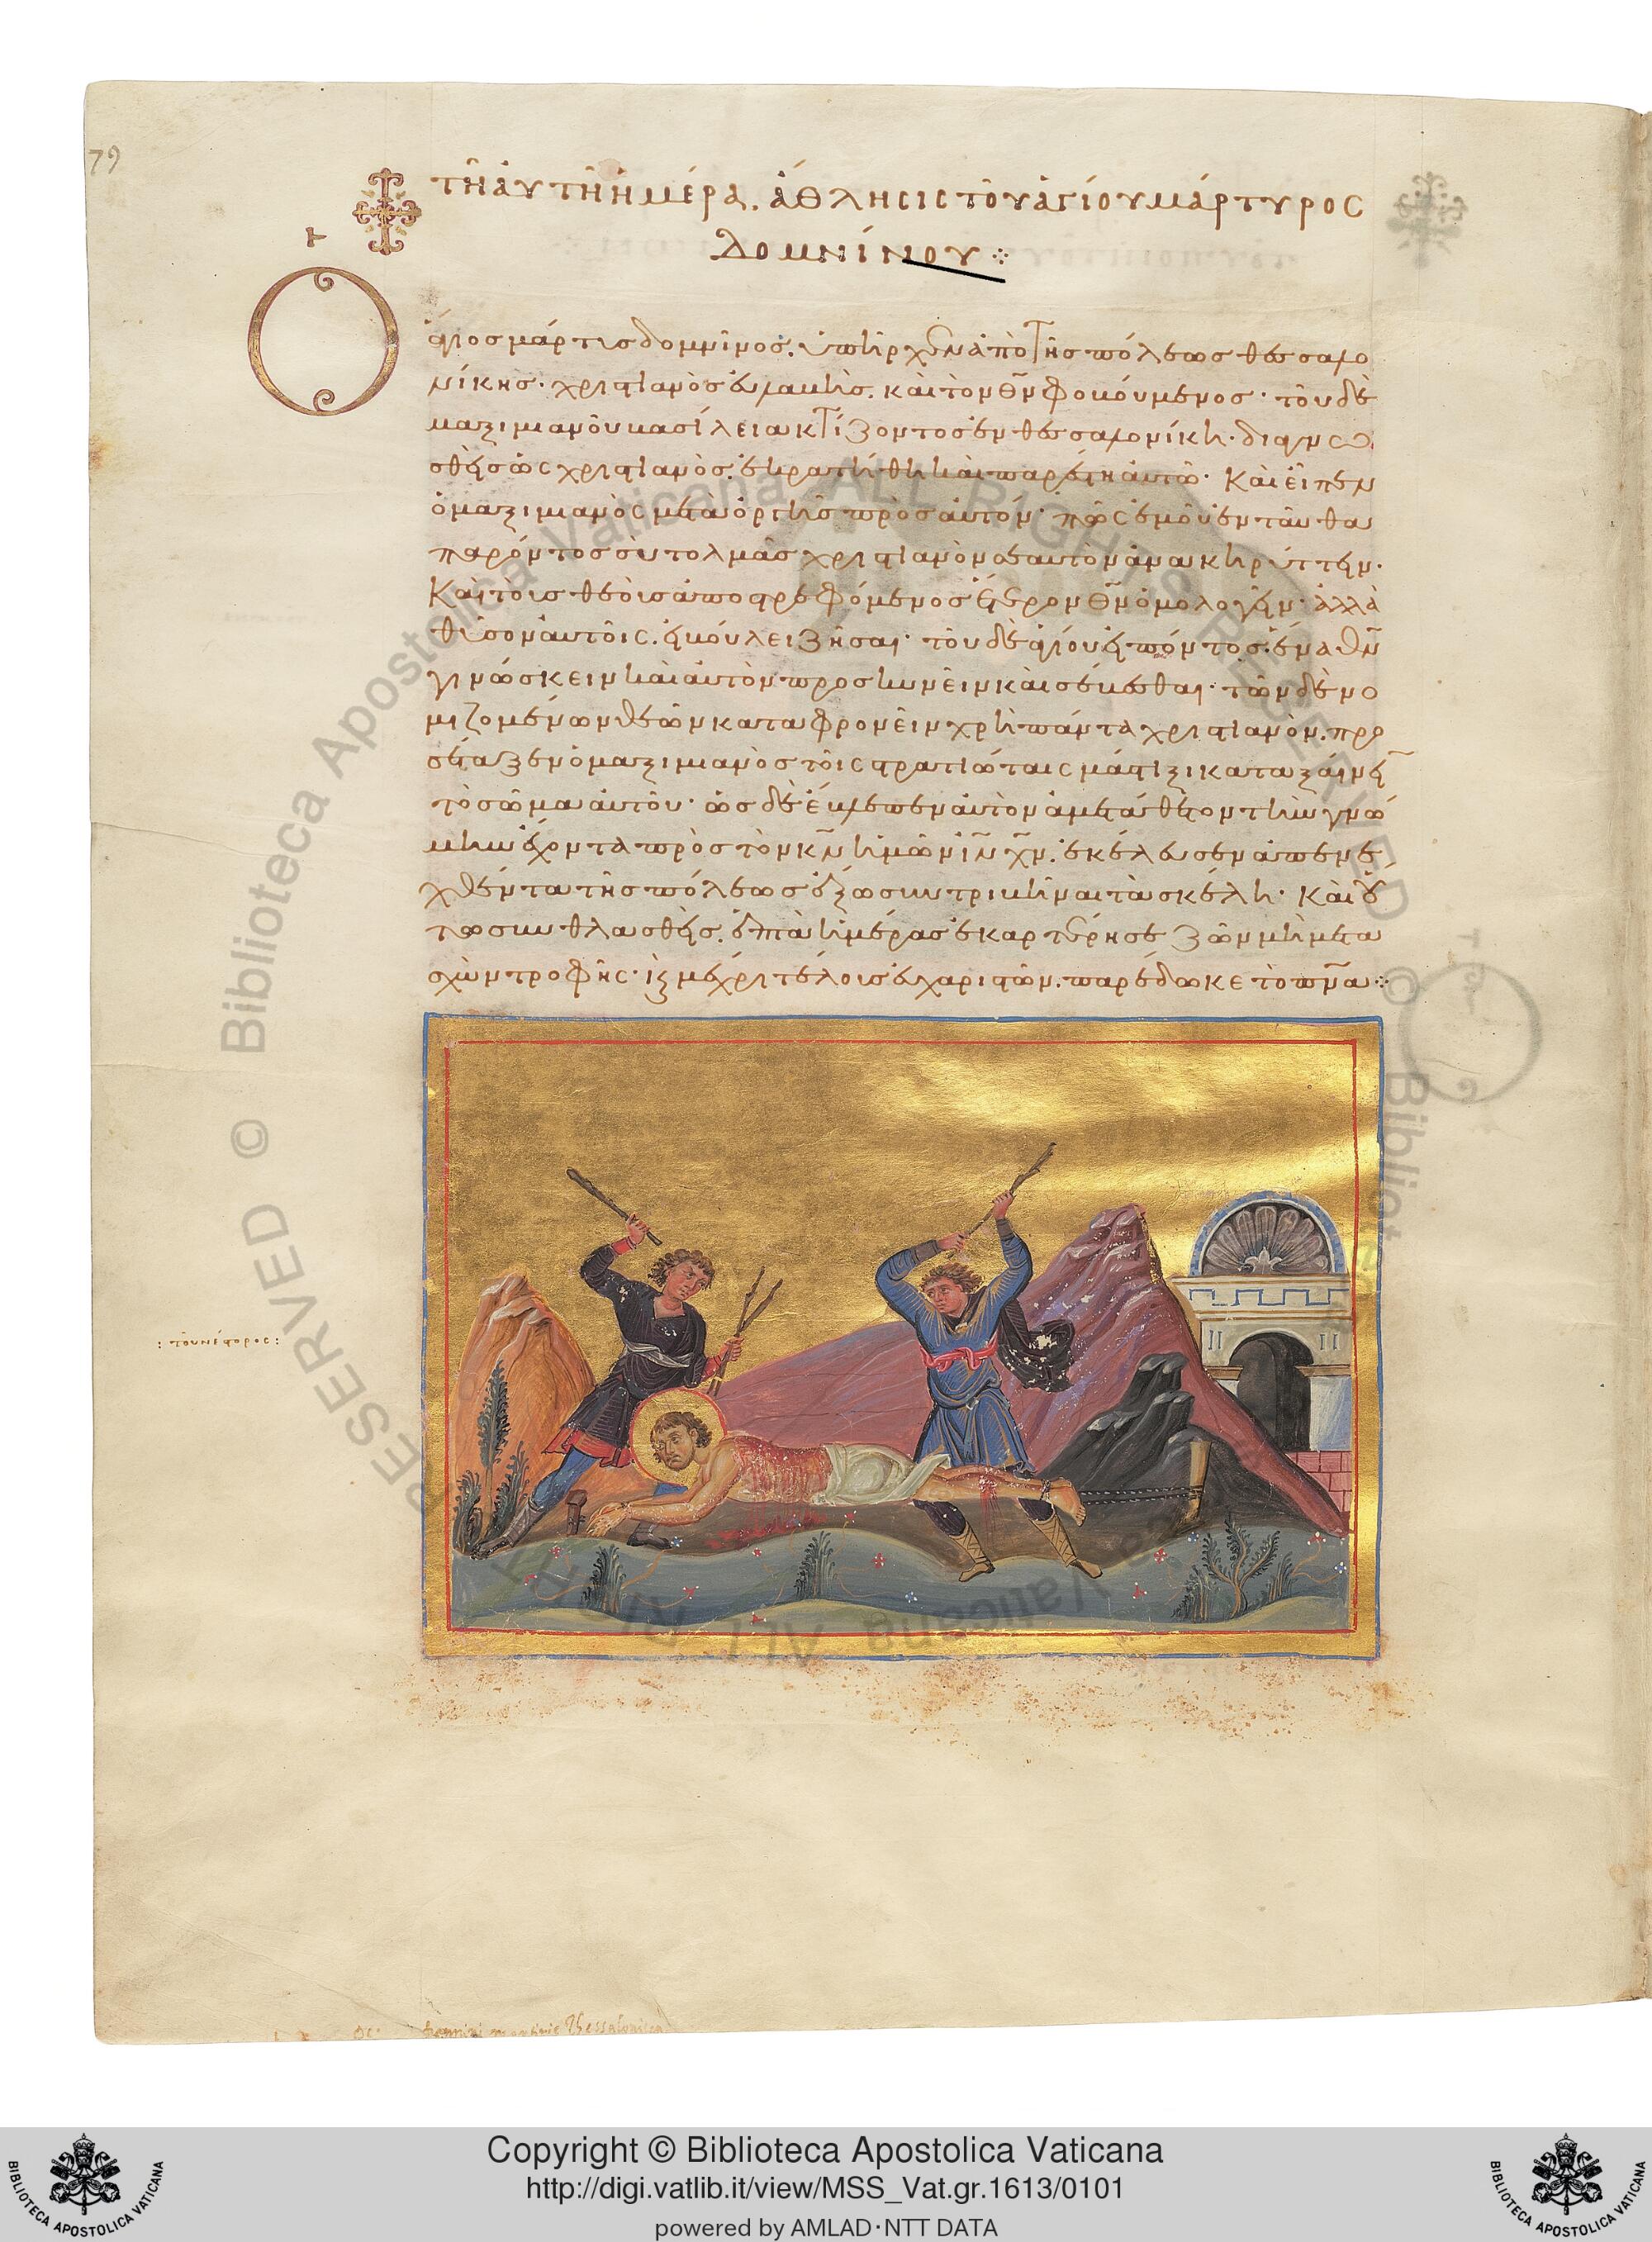 79
τῆ αυτῆ ἡμέρα. ἄθλησις τοῦ ἁγίου μάρτυρος
δομνίνου ⁘
Ὁ
ἅγιος μάρτυς δομνῖνος, ὑπῆρχεν ἀπὸ τῆς πόλεως θεσσαλο
νίκης· χριστιανὸς εὐλαβὴς, καὶ τὸν θν φοβούμενος· τοῦ δὲ
μαξιμιανοῦ βασίλεια κτίζοντος ἐν θεσσαλονίκη·
σθεὶς ὡς χριστιανὸς, ἐκρατήθη καὶ παρέστη αὐτῶ· Καὶ εἶπεν
ὁ μαξιμιανὸς μετὰ ὀργῆς πρὸς αὐτόν· πῶς ἐμοῦ ἐνταῦθα
παρόντος σὺ τολμᾶς χριστιανὸν σεαυτὸν ἀνακηρύττειν·
Καὶ τοῖς θεοῖς ἀποστρεφόμενος ἕτερον θν ὁμολογεῖν· ἀλλὰ
θῦσον αὐτοῖς, εἰ βούλει ζῆσαι· τοῦ δὲ ἁγίου εἰπόντος, ἕνα θν
γινώσκειν καὶ αὐτὸν προσκυνεῖν καὶ σέβεσθαι· τῶν δὲ νο
μιζομένων θεῶν καταφρονεῖν χρὴ πάντα χριστιανὸν, προ
σέταξεν ὁ μαξιμιανὸς τοῖς στρατιώταις μάστιξι καταξαίνειν
τὸ σῶμα αὐτοῦ· ὡς δὲ ἔβλεπεν αὐτὸν ἀμετάθετον τὴν γνώ
μην ἔχοντα πρὸς τὸν κν ἡμῶν ιν χν, ἐκέλευσεν ἀπενε
χθέντα τῆς πόλεως ἔξω συντριβῆναι τὰ σκέλη· Καὶ οὕ
τω συνθλασθεὶς, ἑπτὰ ἡμέρας ἐκαρτέρησε ζῶν μὴ μετα
σχὼν τροφῆς· καὶ μέχρι τέλους εὐχαριστῶν, παρέδωκε τὸ πνα ⁘
: τοῦ νέστορος :
Domnini martiris Thessalonica
Copyright © Biblioteca Apostolica Vaticana
http://digi.vatlib.it/view/MSS_Vat.gr.1613/0101
powered by AMLAD·NTT DATA
BIBLIOTECA APOSTOLICA VATICANA
BIBLIOTECA APOSTOLICA VATICANA
© Biblioteca Apostolica Vaticana ALL RIGHTS RESERVED © Bibliot